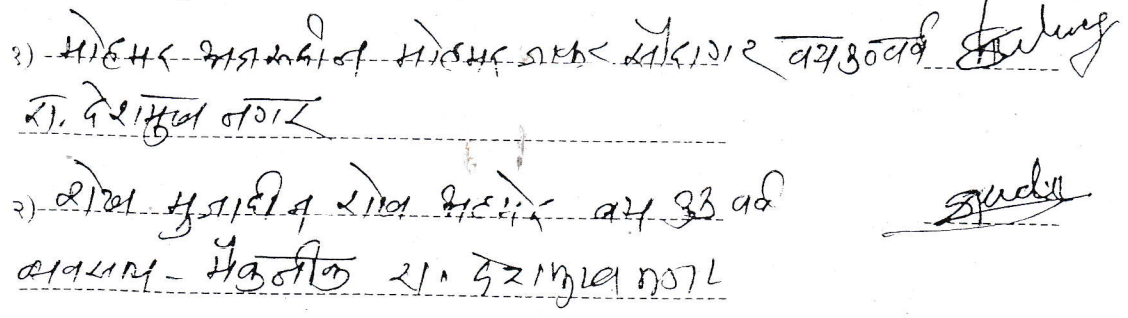 १) मोहमद अजरुद्दीन मोहमद जफर सौदागर वय ३० वर्ष
रा. देशमुख नगर
२) शेख मुजाहीद शेख अहमेद वय ३३ वर्ष
व्यवसाय - मॅकनीक रा. देशमुख नगर